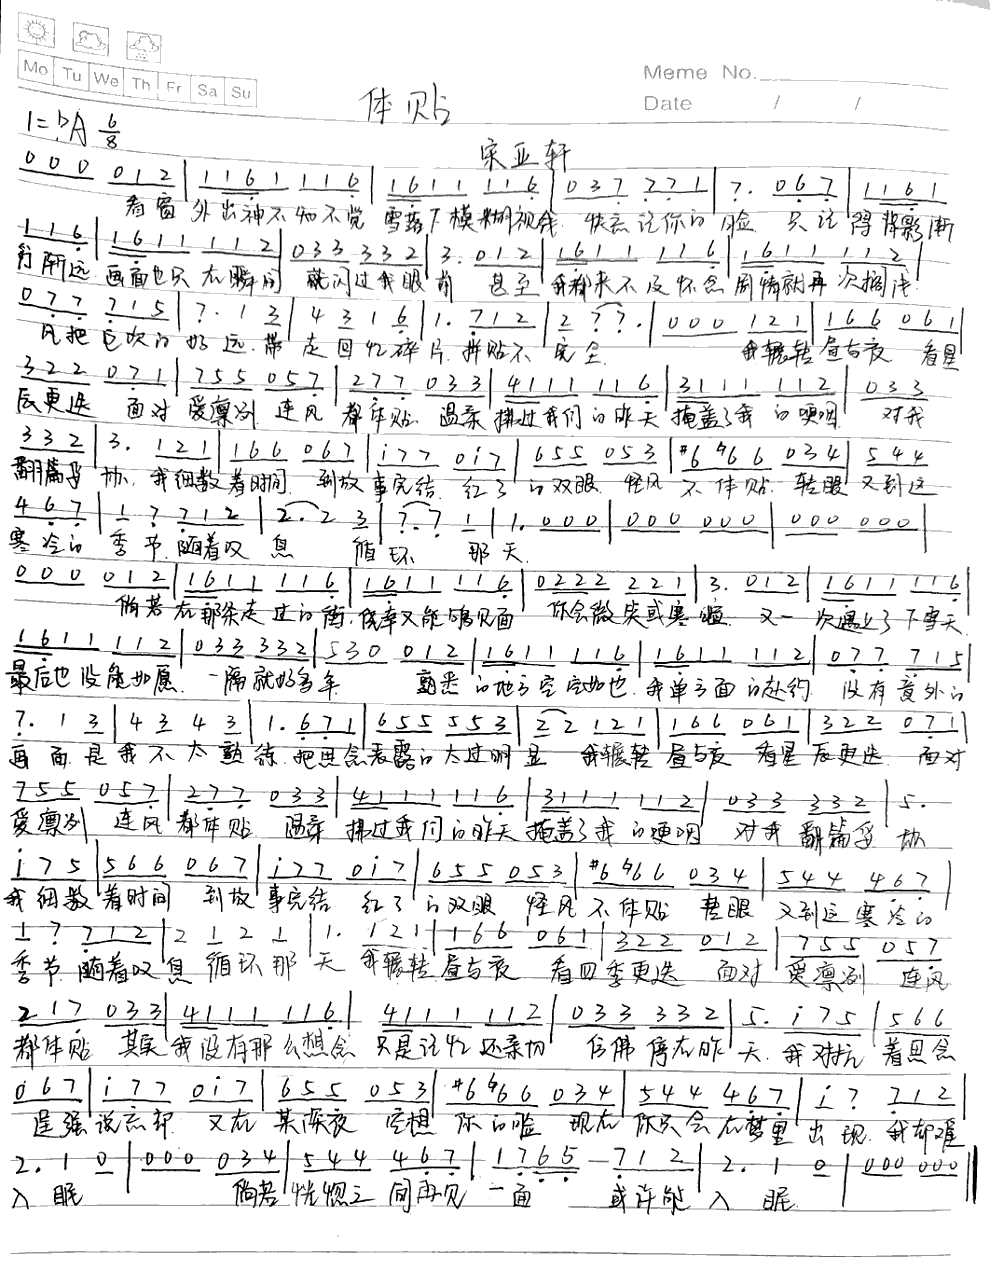 Mo Tu We Th Fr Sa Su
Meme No.
Date / /
体贴
1=♭A 6/8
宋亚轩
000 012 | 1161 116 | 1611 116 | 037 771 | 7. 067 | 1161
看窗 外出神不知不觉 雪落下模糊视线 快忘记你的脸 只记得背影渐
116 | 1611 112 | 033 332 | 3. 012 | 1611 116 | 1611 112
行渐远 画面也只在瞬间 就闪过我眼前 甚至 我都来不及怀念 剧情就再次搁浅
077 715 | 7. 1 3 | 4 3 1 6 | 1. 712 | 2 77. | 000 121 | 166 061
带走回忆碎片 拼贴不完全 我辗转 昼与夜 看星
322 071 | 755 057 | 277 033 | 4111 116 | 3111 112 | 033
辰更迭 面对 爱凛冽 连风 都体贴 温柔 拂过我们的昨天 掩盖了我的哽咽 对我
332 | 3. 121 | 166 067 | i77 0i7 | 655 053 | #6♮66 034 | 544
翻篇妥协 我细数着时间 到故事完结 红了的双眼 怪风 不体贴 转眼 又到这
467 | 1 7 712 | 2. 2 3 | 7. 7 1 | 1. 000 | 000 000 | 000 000
寒冷的 季节 随着叹息 循环 那天
000 012 | 1611 116 | 1611 116 | 0222 221 | 3. 012 | 1611 116
倘若 在那条走过的街 侥幸又能够见面 你会微笑或寒暄 又一次遇上了下雪天
1611 112 | 033 332 | 530 012 | 1611 116 | 1611 112 | 077 715
最后也没能如愿 一隔就好多年 熟悉的地方空空如也 我单方面的赴约 没有意外的
7. 1 3 | 4 3 4 3 | 1. 671 | 655 553 | 22 121 | 166 061 | 322 071
再面 是我不太熟练 把思念表露的太过明显 我辗转 昼与夜 看星辰更迭 面对
755 057 | 277 033 | 4111 116 | 3111 112 | 033 332 | 5.
爱凛冽 连风 都体贴 温柔 拂过我们的昨天 掩盖了我的哽咽 对我 翻篇妥协
i75 | 566 067 | i77 0i7 | 655 053 | #6♮66 034 | 544 467
我细数着时间 到故事完结 红了的双眼 怪风 不体贴 转眼 又到这寒冷的
1 7 712 | 2 1 2 1 | 1. 121 | 166 061 | 322 012 | 755 057
季节 随着叹息 循环那天 我辗转 昼与夜 看四季更迭 面对 爱凛冽 连风
217 033 | 4111 116 | 4111 112 | 033 332 | 5. i75 | 566
都体贴 其实 我没有那么想念 只是记忆还亲切 仿佛停在昨天 我对抗着思念
067 | i77 0i7 | 655 053 | #6♮66 034 | 544 467 | i 7 712
逞强说忘却 又在某深夜 空想 你的脸 现在 你只会在梦里出现 我却难
2. 1 0 | 000 034 | 544 467 | 1765 712 | 2. 1 0 | 000 000
入眠 倘若 恍惚之间再见一面 或许能入眠